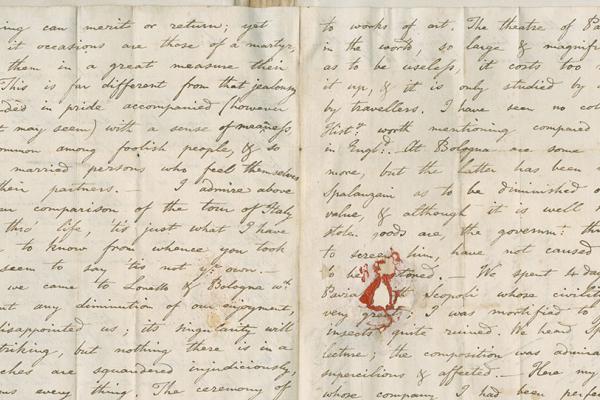 ing can merit or return; yet
it occasions are those of a martyr,
them in a great measure their
This is far different from that jealousy
ded in pride accompanied (however
t may seem) with a sense of meanness,
ommon among foolish people, & so
married persons who feel themselves
heir partners. — I admire above
er comparison of the tour of Italy
thro' life, 'tis just what I have
to know from whence you took
seem to say 'tis not yr. own. —
we came to Loretto & Bologna wth.
ut any diminution of our enjoyment,
disappointed us; its singularity will
triking, but nothing there is in a
ches are squandered injudiciously,
every thing. The ceremony of
to works of art. The theatre of Pa
in the world, so large & magnifi
as to be useless, it costs too
it up, & it is only studied by
by travellers. I have seen no col
Histy. worth mentioning compared
in Engld. At Bologna are some
more, but the latter has been
Spalanzani as to be diminished o
value, & although it is well
stolen goods are, the governmt. th
to screen him, have not caused
to be stoned. — We spent 4 day
Pavia Scopoli whose civilit
very great; I was mortified to
insects quite ruined. We heard Sp
lecture; the composition was admira
supercilious & affected. — Here my
whose company I had been perfe